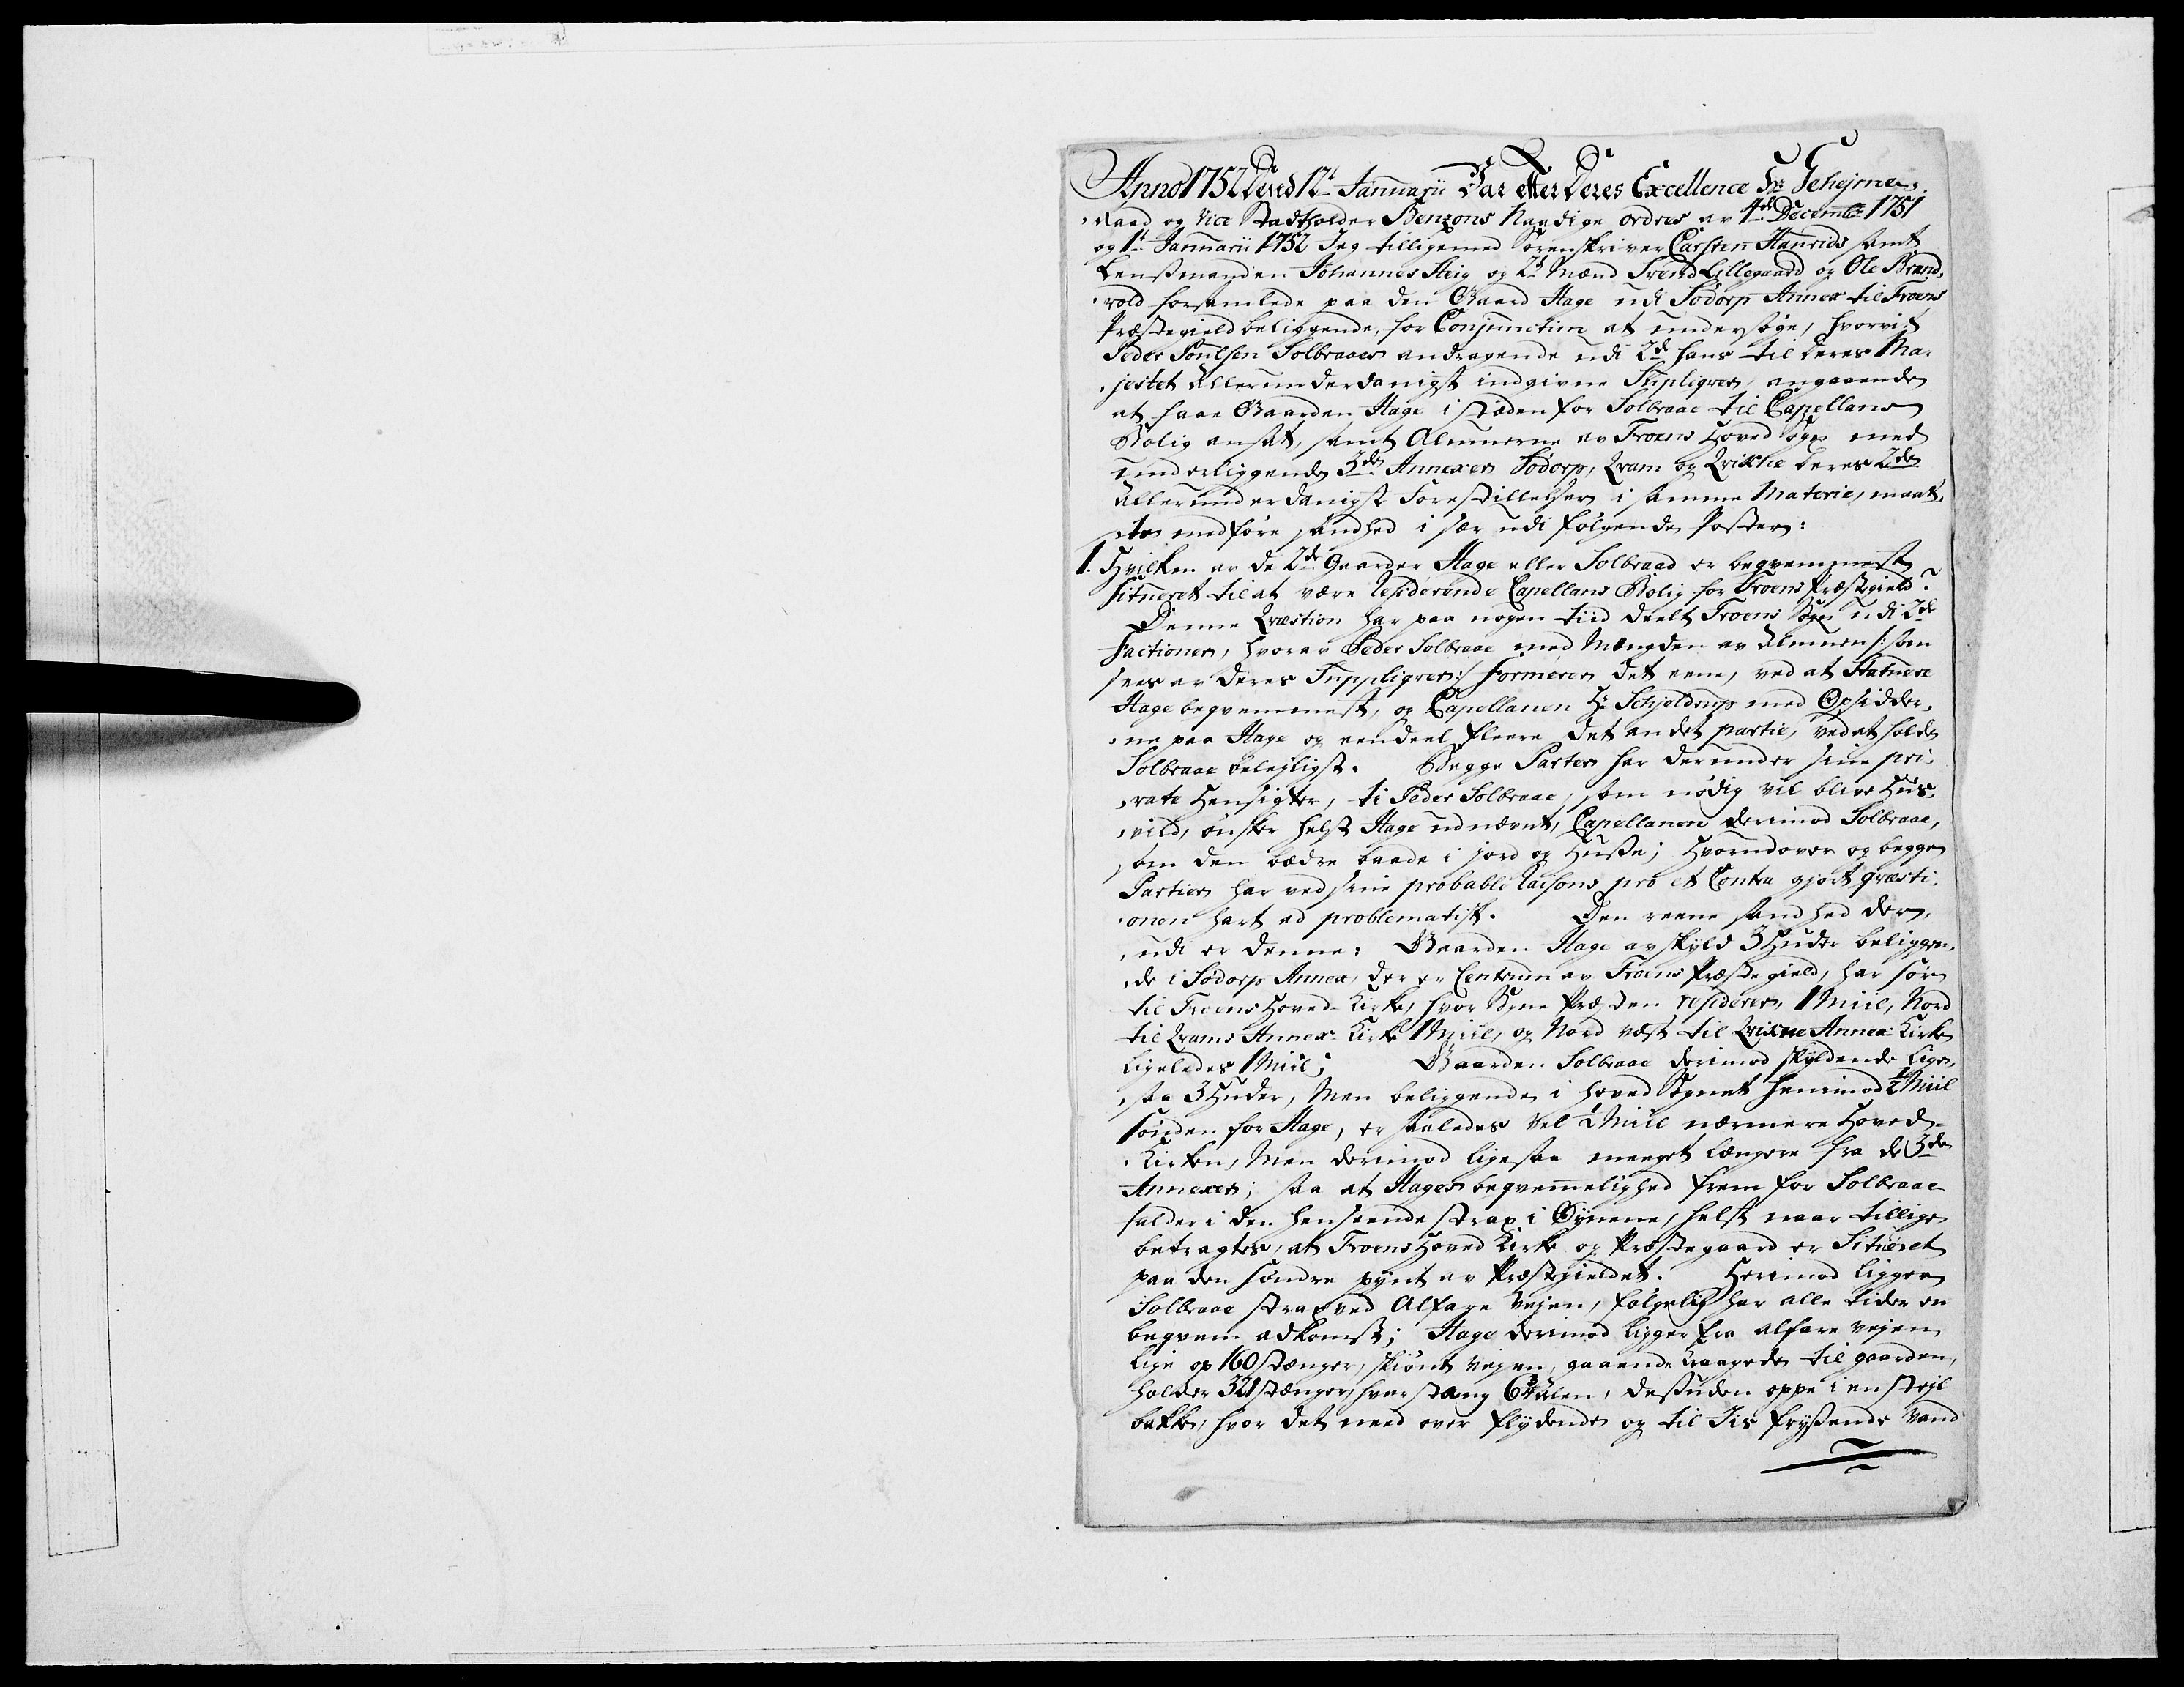 Anno 1752 Dend 12t Januarii Var efter Deres Excellence Hr: Gehejme-
raad og Vice Stadtholder Benzons Naadige ordres av 4de Decembr 1751
og 1t Januarii 1752 Jeg tilligemed Sorenskriver Carsten Hanrids samt
Lensmanden Johannes Steig og 2de Mænd Svend Lillegaard og Ole Brand-
vold forsamlede paa den Gaard Hage udi Södorp Annex til Froens
Præstegield beliggende, for Conjunctim at undersöge, hvorvit
Peder Poulsen Solbraaes andragende udi 2de hans til Deres Ma-
jestet Allerunderdanigst indgivne Supliqver, angaaende
at faae Gaarden Hage i stæden for Solbraae til Capellans
Bolig ansat, samt Almuerne av Froens Hoved Sogn med
underliggende 3de Annexer Södorp, Qvam og Qvikne deres 2de
Allerunderdanigst Forestillelser i samme Materie, maat-
te medföre sandhed i sær udi fölgende Poster:
1. Hvilken av de 2de Gaarder Hage eller Solbraae er beqvemmest
Situeret til at være Residerende Capellans Bolig for Froens Præstegield?
Denne Qvæstion har paa nogen tiid deelt Froens Sogn udi 2de
Factioner, hvorav Peder Solbraae med Mængden av Almuen /: som
sees av deres Suppliqver :/ formerer det eene, ved at Statuere
Hage beqvemmest, og Capellanen Hr Schjoldrup med Opsidder-
ne paa Hage og eendeel fleere det andet partie, ved at holde
Solbraae belejligst. Begge Parter har derunder sine pri-
vate Hensigter, ti Peder Solbraae, som nödig vil blive Huus-
vild, önsker helst Hage udnævnt, Capellanen derimod Solbraae,
som den bædre baade i jord og Huuse; Hvorudover og begge
Partier har ved sine probable Raisons pro et Contra gjort qvæsti-
onen hart ad problematisk. Den reene sandhed der-
udi er denne: Gaarden Hage avskyld 3 Huder beliggen-
de i Södorp Annex, der er Centrum av Froens Præstegield, har sör
til Froens Hoved-Kirke, hvor Sogne Præsten residerer, 1 Miil, Nord
til Qvams Annex-Kirke 1 Miil, og Nord væst til Qvikne Annex Kirke
ligeledes 1 Miil; Gaarden Solbraae derimod skyldende lige-
saa 3 Huder, Men beliggende i hoved Sognet henimod ½ Miil
sönden for Hage, er saaledes vel ½ Miil nærmere Hoved-
Kirken, Men derimod ligesaa meeget længere fra de 3de
Annexer; saa at Hages beqvemelighed frem for Solbraae
falder i den henseende strax i Öynene, helst naar tillige
betragtes, at Froens Hoved Kirke og Præstegaard er Situeret
paa den söndre pynt av Præstegieldet. Herimod ligger
Solbraae strax ved Alfare Vejen, fölgelig har alle tider en
beqvem adkomst; Hage derimod ligger fra alfare vejen
lige op 160 stænger, skiönt Vejen, gaaende Kraagede til gaarden,
holder 321 stænger, hver stang 6¾ alen, desuden oppe i en stejl
bakke, hvor det need over flydende og til Iis frysende Vand